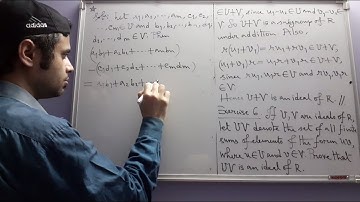 adidas
Sol. Let a₁, a₂, ..., am, c₁, c₂,
..., cm ∈ U and b₁, b₂, ..., bm,
d₁, ..., dm ∈ V. Then
(a₁b₁ + a₂b₂ + ... + ambm)
- (c₁d₁ + c₂d₂ + ... + cmdm)
= a₁b₁ + a₂b₂ +
∈ U+V, since
So U+V is a subgroup of R
under addition. Also,
r(u₁+v₁) = ru₁ + rv₁ ∈ U+V,
(u₁+v₁)r = u₁r + v₁r ∈ U+V,
since ru₁, u₁r ∈ U and rv₁, v₁r
∈ V.
Hence U+V is an ideal of R. //
Exercise 6. If U, V are ideals of R,
let UV denote the set of all finite
sums of elements of the form uv,
where u ∈ U and v ∈ V. Prove that
UV is an ideal of R.